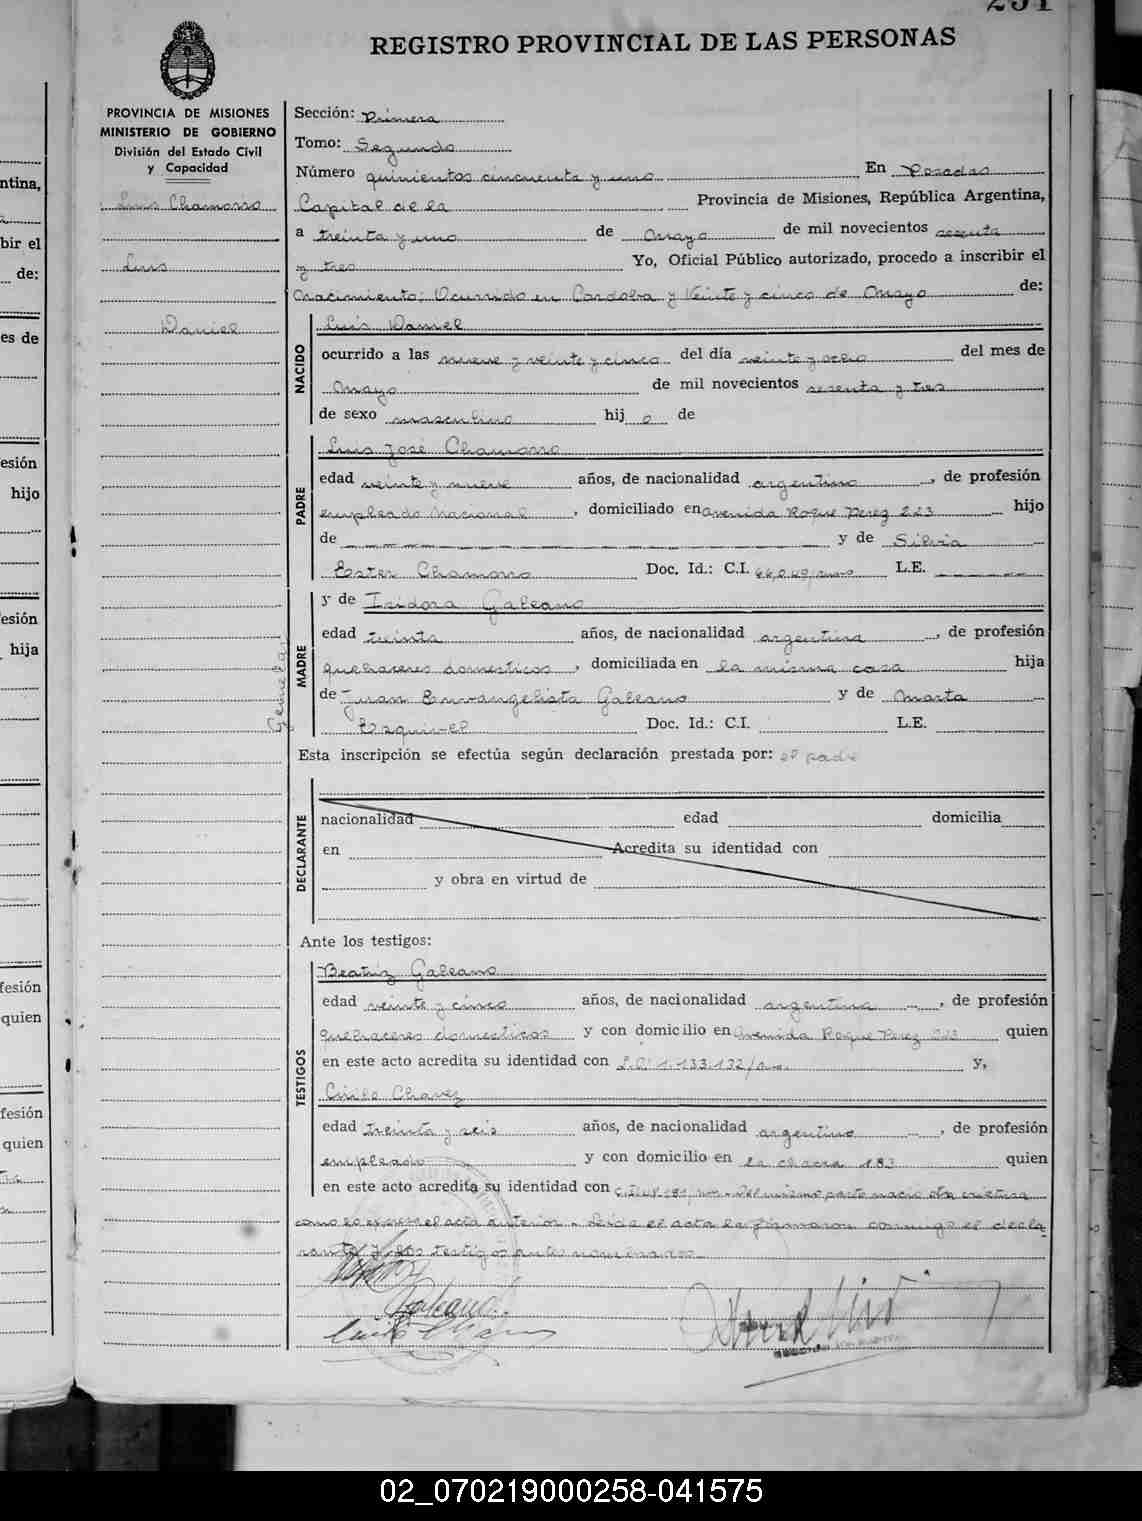 231
REGISTRO PROVINCIAL DE LAS PERSONAS
PROVINCIA DE MISIONES
MINISTERIO DE GOBIERNO
División del Estado Civil
y Capacidad
Luis Chamorro
Luis
Daniel
Gemelar
Sección: Primera
Tomo: Segundo
Número quinientos cincuenta y uno En Posadas
Capital de la Provincia de Misiones, República Argentina,
a treinta y uno de Mayo de mil novecientos sesenta
y tres Yo, Oficial Público autorizado, procedo a inscribir el
Nacimiento: Ocurrido en Cordoba y Veinte y cinco de Mayo de:
NACIDO
Luis Daniel
ocurrido a las nueve y veinte y cinco del día veinte y ocho del mes de
Mayo de mil novecientos sesenta y tres
de sexo masculino hijo de
PADRE
Luis José Chamorro
edad veinte y nueve años, de nacionalidad argentino, de profesión
empleado Nacional, domiciliado en Avenida Roque Perez 223 hijo
de y de Silvia
Ester Chamorro Doc. Id.: C.I. L.E.
MADRE
y de Isidora Galeano
edad treinta años, de nacionalidad argentina, de profesión
quehaceres domesticos, domiciliada en la misma casa hija
de Juan Envangelista Galeano y de Marta
Esquivel Doc. Id.: C.I. L.E.
Esta inscripción se efectúa según declaración prestada por: el padre
DECLARANTE
nacionalidad edad domicilia
en Acredita su identidad con
y obra en virtud de
Ante los testigos:
TESTIGOS
Beatriz Galeano
edad veinte y cinco años, de nacionalidad argentina, de profesión
quehaceres domesticos y con domicilio en Avenida Roque Perez 223 quien
en este acto acredita su identidad con L.C. 1.133.132/ y,
Cirilo Chavez
edad treinta y seis años, de nacionalidad argentino, de profesión
empleado y con domicilio en la chacra 183 quien
en este acto acredita su identidad con Del mismo parto nacio otra criatura
como lo expresa el acta anterior. Leida el acta la firmaron conmigo el decla
rante y los testigos antes nombrados
Galeano
Cirilo Chavez
ntina,
bir el
de:
es de
esión
hijo
esión
hija
fesión
quien
fesión
quien
02_070219000258-041575